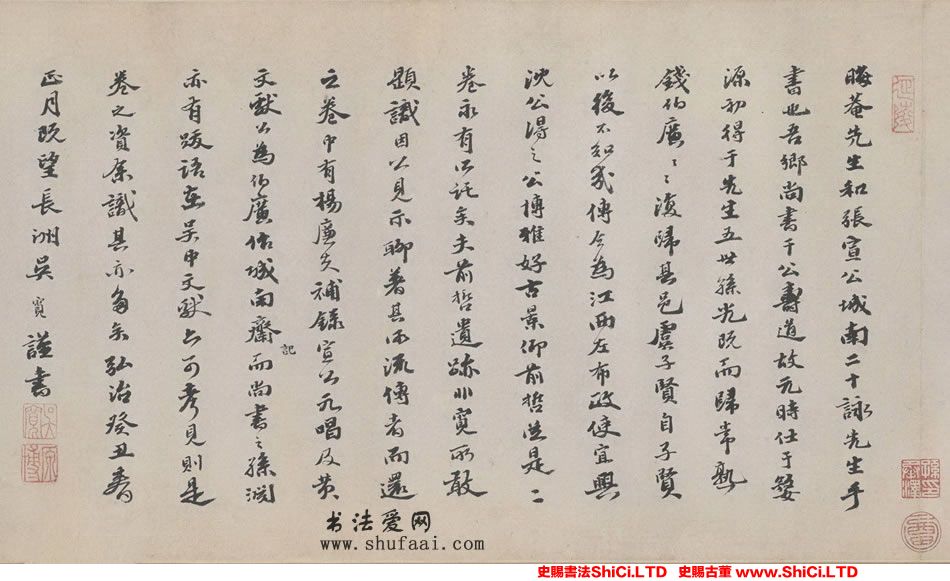 晦菴先生和張宣公城南二十詠先生手
書也吾鄉尚書干公壽道故元時仕于婺
源初得于先生五世孫光既而歸常熟
錢伯廣〻復歸其邑虞子賢自子賢
以後不知幾傳今為江西左布政使宜興
沈公得之公博雅好古景仰前哲蓋是二
卷永有所託矣夫前哲遺跡非寬所敢
題識因公見示聊著其所流傳者而還
之卷中有楊廉夫補錄宣公元唱及黃
文獻公為伯廣作城南齋記而尚書之孫淵
亦有跋語在吳中文獻亦可考見則是
卷之資余識其亦多矣弘治癸丑春
正月既望長洲吳寬謹書
书法爱网
www.shufaai.com
史賜書法ShiCi.LTD 史賜古董 www.ShiCi.LTD